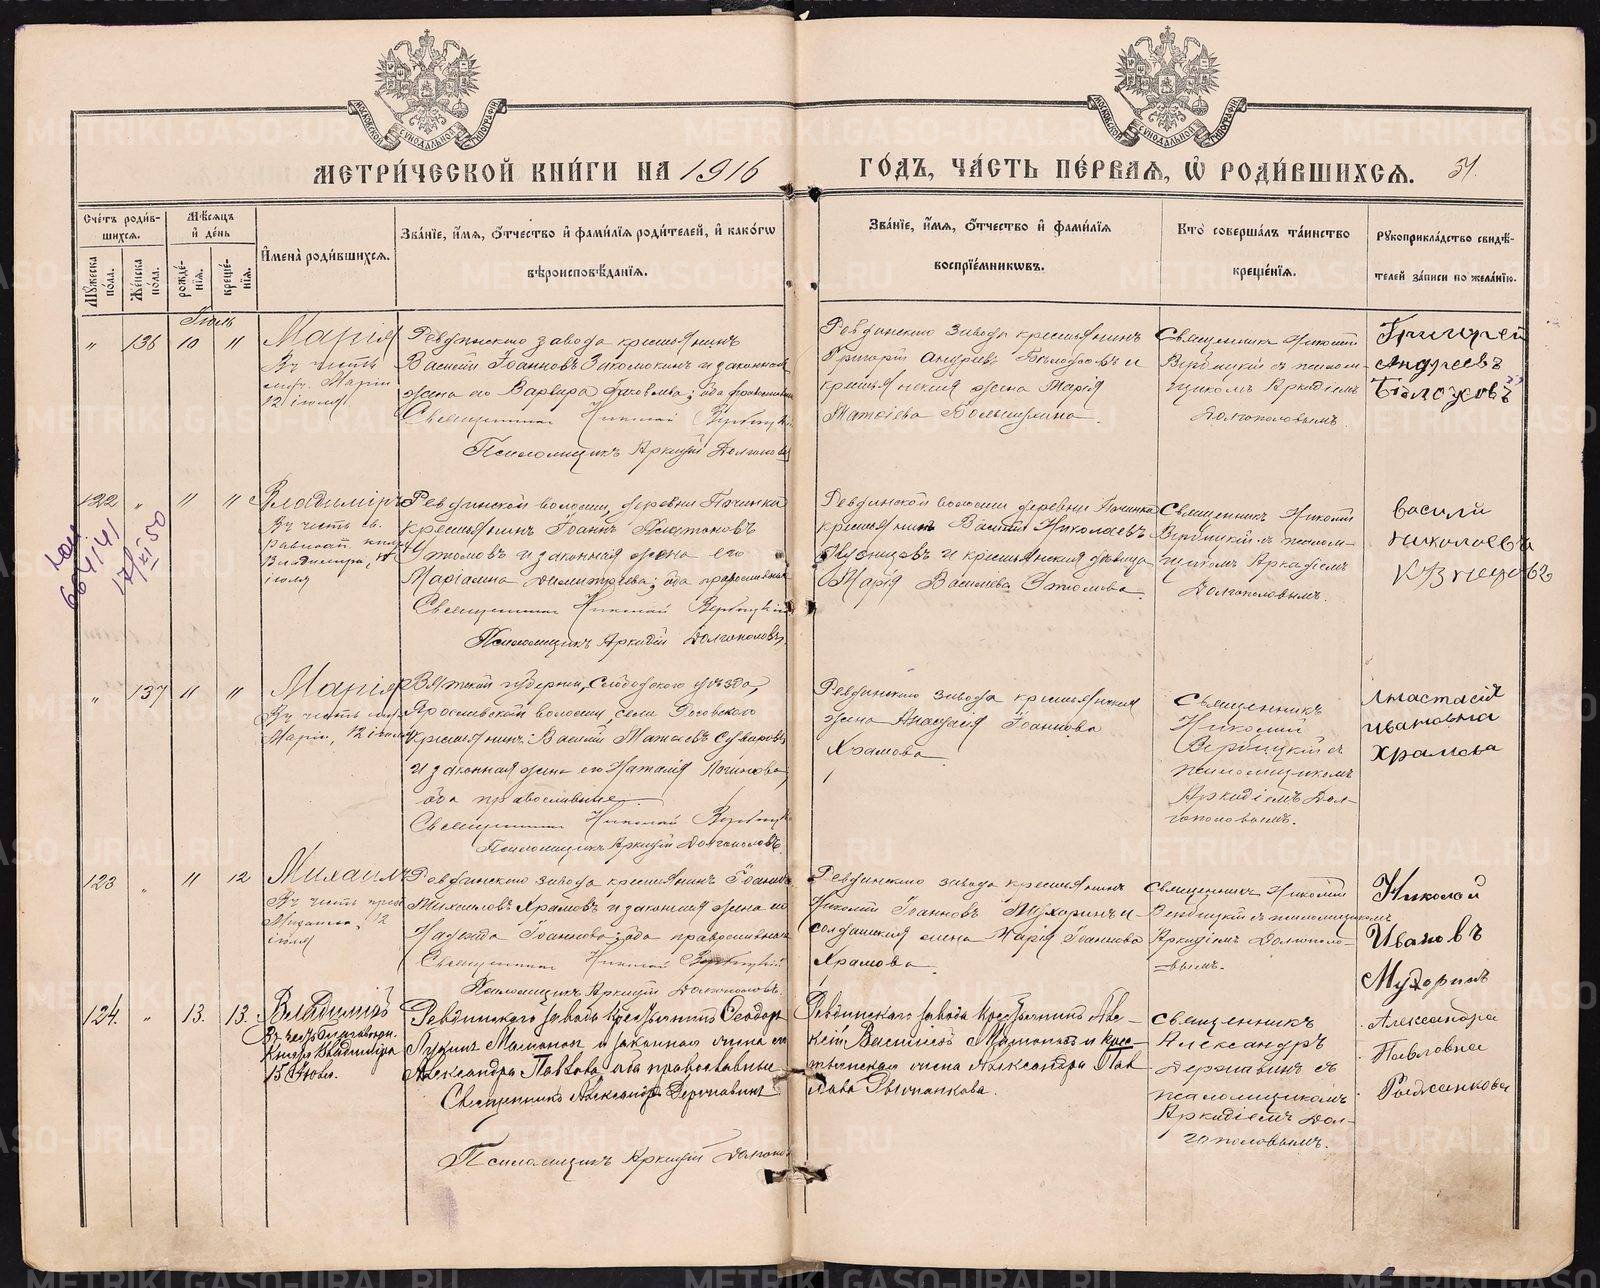 МЕТРИ́ЧЕСКОЙ КНИ́ГИ НА 1916
ГО́ДЪ, ЧА́СТЬ ПЕ́РВАѦ, Ѡ РОДИ́ВШИХСѦ. 54.
Сче́тъ роди́в-
шихсѧ.
Мѣ́сѧцъ
и҆ де́нь
И҆мена̀ роди́вшихсѧ.
Зва́нїе, и҆́мѧ, о҆́тчество и҆ фами́лїѧ роди́телей, и҆ како́гѡ
вѣроисповѣ́данїѧ.
Зва́нїе, и҆́мѧ, о҆́тчество и҆ фами́лїѧ
воспрїе́мникѡвъ.
Кто̀ соверша́лъ та́инство
креще́нїѧ.
Рꙋкоприкла́дство свидѣ́-
телей за́писи по жела́нїю.
Мꙋ́жеска
по́ла.
Же́нска
по́ла.
рожде́-
нїѧ.
креще́-
нїѧ.
Іюль
" 136 10 "
Марія
Въ честь
Марiи
12 іюля
Ревдинскаго завода крестьянинъ
Василій Іоанновъ и законная
жена его Варвара Яковлева; оба православные
Священникъ Николай Вербицкій
Псаломщикъ Аркадій Долгополовъ
Ревдинскаго завода крестьянинъ
Григорій Андреевъ Бѣлоусовъ и
крестьянская жена Марія
Матѳіева
Священникъ Николай
Вербицкій съ псалом-
щикомъ Аркадіемъ
Долгополовымъ.
Григорей
Андреевъ
Белоусовъ
122 " " "
Владиміръ
Въ честь св.
Равноап. князя
Владиміра, 15
іюля
Ревдинской волости, деревни Починка
крестьянинъ Іоаннъ Платоновъ
и законная жена его
Димитріева; оба православные
Священникъ Николай Вербицкій
Псаломщикъ Аркадій Долгополовъ.
Ревдинской волости деревни Починка
крестьянинъ Василій Николаевъ
Кузнецовъ и крестьянская дѣвица
Марія Василіева
Священникъ Николай
Вербицкій съ псалом-
щикомъ Аркадіемъ
Долгополовымъ.
Василий
Николаевъ
Кузнецовъ
664141
17/XI 50
" 137 " "
Марія
Въ честь
Маріи, 12 іюля
Вятской губерніи, Слободского уѣзда,
Ярославской волости, села
крестьянинъ Василій Матѳіевъ Суворовъ
и законная жена его Наталія Логинова,
оба православные.
Священникъ Николай Вербицкій
Псаломщикъ Аркадій Долгополовъ.
Ревдинскаго завода крестьянская
жена Анастасія Іоаннова
Храмова
Священникъ
Николай
Вербицкій съ
псаломщикомъ
Аркадіемъ Дол-
гополовымъ.
Анастасія
Ивановна
Храмова
123 " 11 12
Михаилъ
Въ честь преп.
Михаила, 12
іюля
Ревдинскаго завода крестьянинъ Іоаннъ
Михаиловъ Храмовъ и законная жена его
Надежда Іоаннова; оба православные
Священникъ Николай Вербицкій
Псаломщикъ Аркадій Долгополовъ.
Ревдинскаго завода крестьянинъ
Николай Іоанновъ Мухоринъ и
солдатская жена Марія Іоаннова
Храмова.
Священникъ Николай
Вербицкій съ псаломщикомъ
Аркадіемъ Долгополо-
вымъ.
Николай
Ивановъ
Мухоринъ
124. " 13. 13.
Владиміръ
Въ честь благовѣрн.
Князя Владиміра
15 Іюля.
Ревдинскаго завода крестьянинъ Ѳеодоръ
Лукинъ Мамоновъ и законная жена его
Александра Павлова, оба православные
Священникъ Александръ Державинъ
Псаломщикъ Аркадій Долгополовъ
Ревдинскаго завода крестьянинъ Але-
ксѣй Васильевъ Мамоновъ и крес-
тьянская жена Александра Пав-
лова
Священникъ
Александръ
Державинъ съ
псаломщикомъ
Аркадіемъ Дол-
гополовымъ.
Александра
Павловна